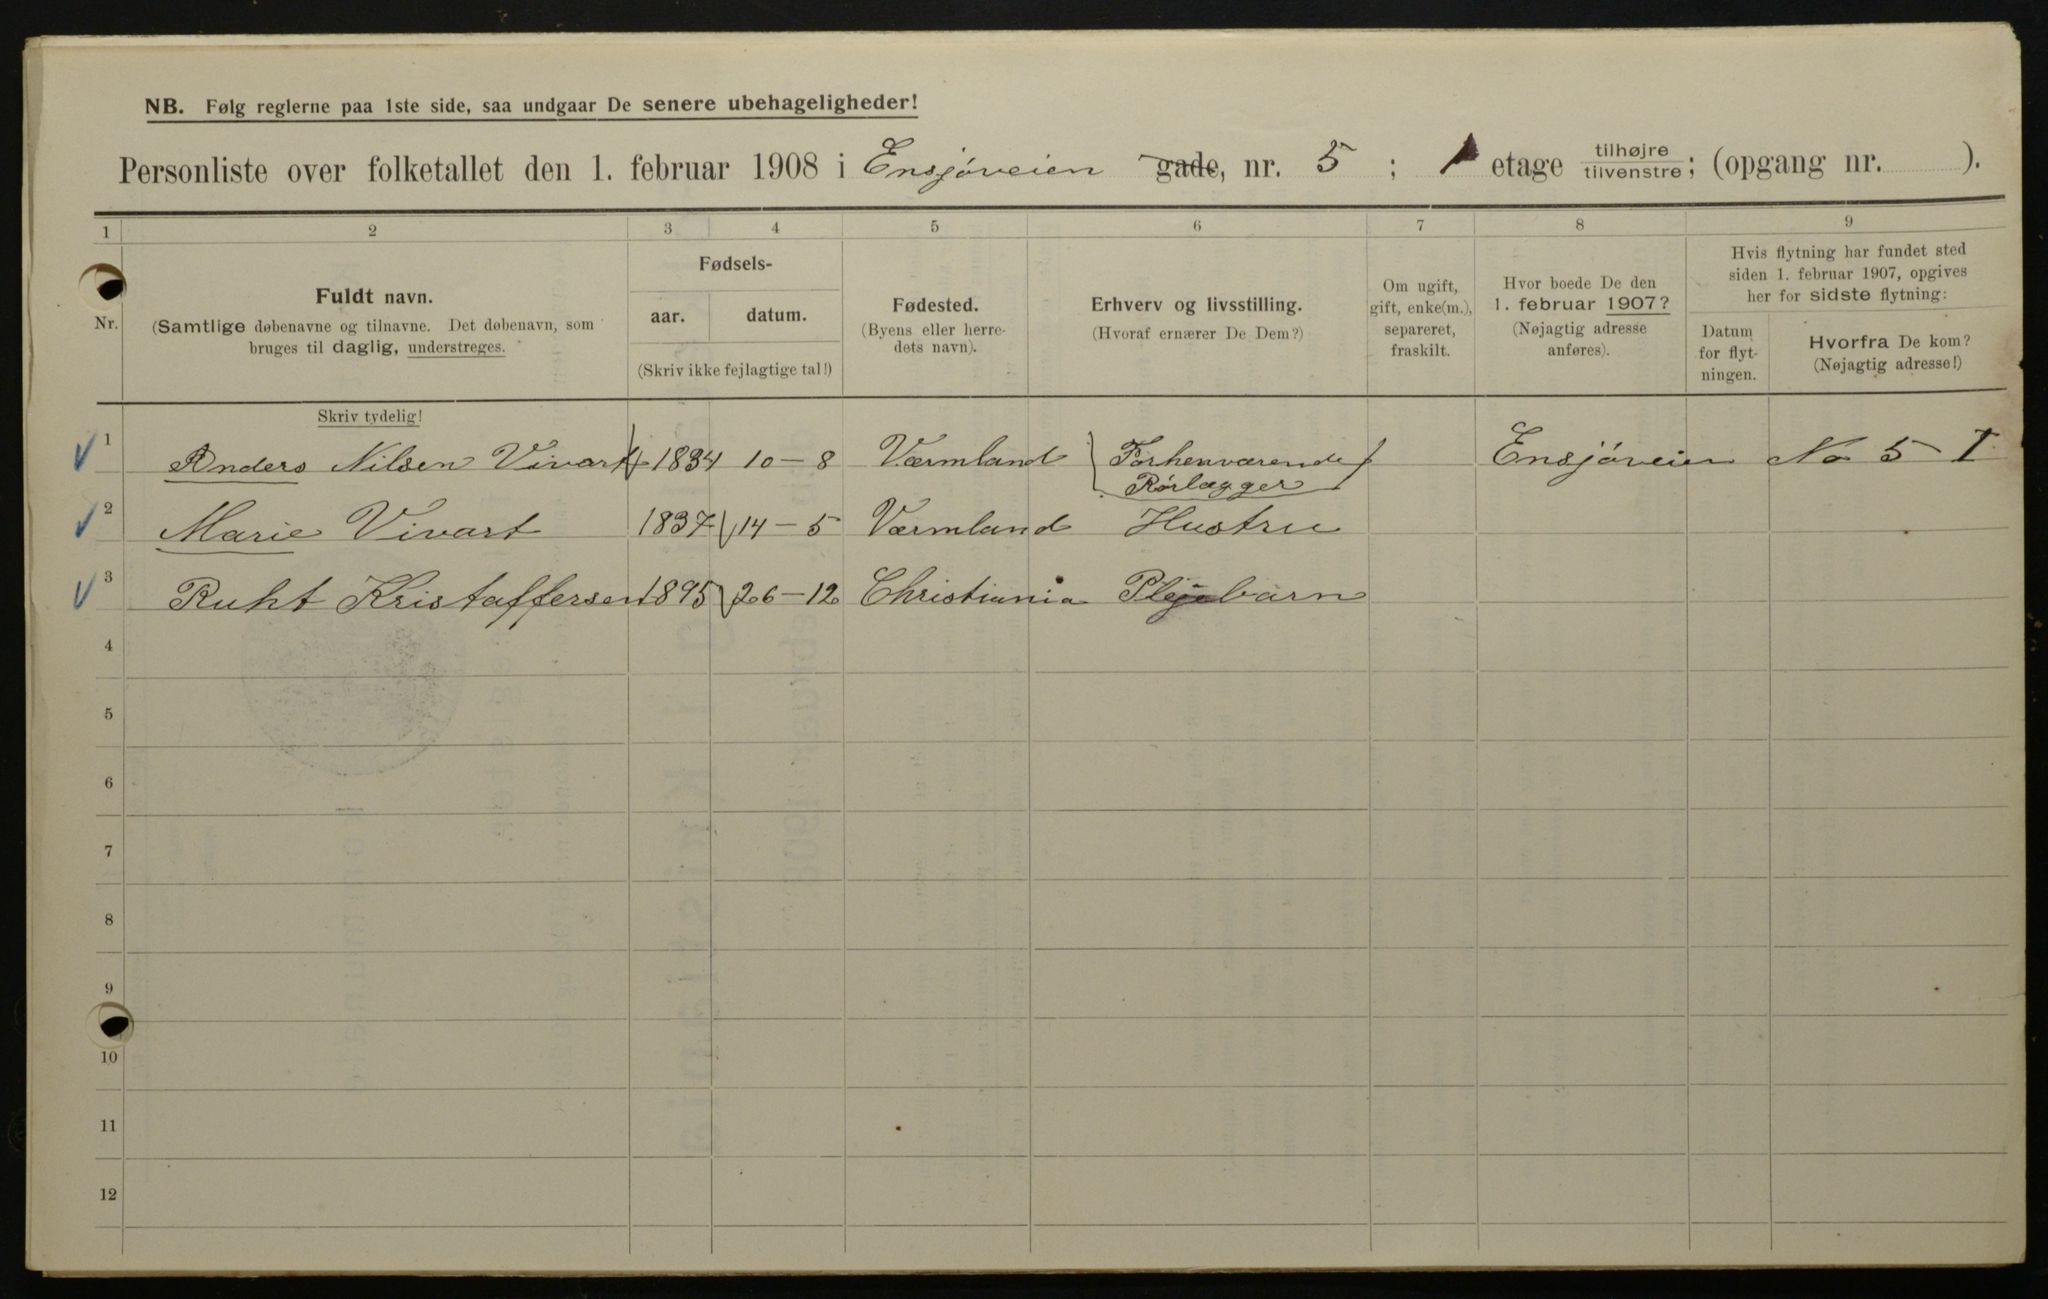 NB. Følg reglerne paa 1ste side, saa undgaar De senere ubehageligheder!
Personliste over folketallet den 1. februar 1908 i Ensjøveien gade, nr. 5 ; 1 etage tilhøjre tilvenstre; (opgang nr. ).
1 2 3 4 5 6 7 8 9
Nr.
Fuldt navn.
(Samtlige døbenavne og tilnavne. Det døbenavn, som
bruges til daglig, understreges.
Skriv tydelig!
Fødsels-
aar. datum.
(Skriv ikke fejlagtige tal!)
Fødested.
(Byens eller herre-
dets navn).
Erhverv og livsstilling.
(Hvoraf ernærer De Dem?)
Om ugift,
gift, enke(m.),
separeret,
fraskilt.
Hvor boede De den
1. februar 1907?
(Nøjagtig adresse
anføres).
Hvis flytning har fundet sted
siden 1. februar 1907, opgives
her for sidste flytning:
Datum
for flyt-
ningen.
Hvorfra De kom?
(Nøjagtig adresse!)
1 Anders Nilsen Vivart 1834 10-8 Værmland Forhenværende Ensjøveien No 5 I
Rørlægger
2 Marie Vivart 1837 14-5 Værmland Hustru
3 Ruht Kristaffersen 1895 26-12 Christiania Plejebarn
4
5
6
7
8
9
10
11
12